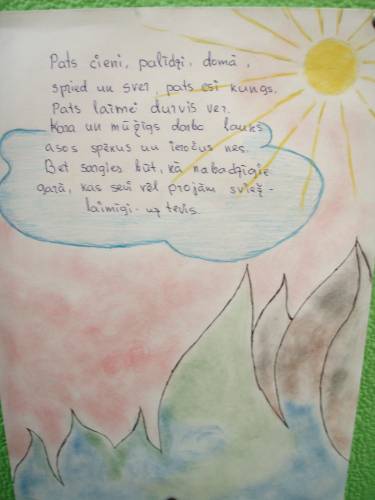 Pats cieni, palīdzi, domā,
spried un sver, pats esi kungs.
Pats laimei durvis ver.
Kara un mūžīgs darba lauks
asos spēkus un ieročus nes.
Bet sargies būt, kā nabadzīgie
garā, kas sevi vēl projām sviež -
laimīgi - uz